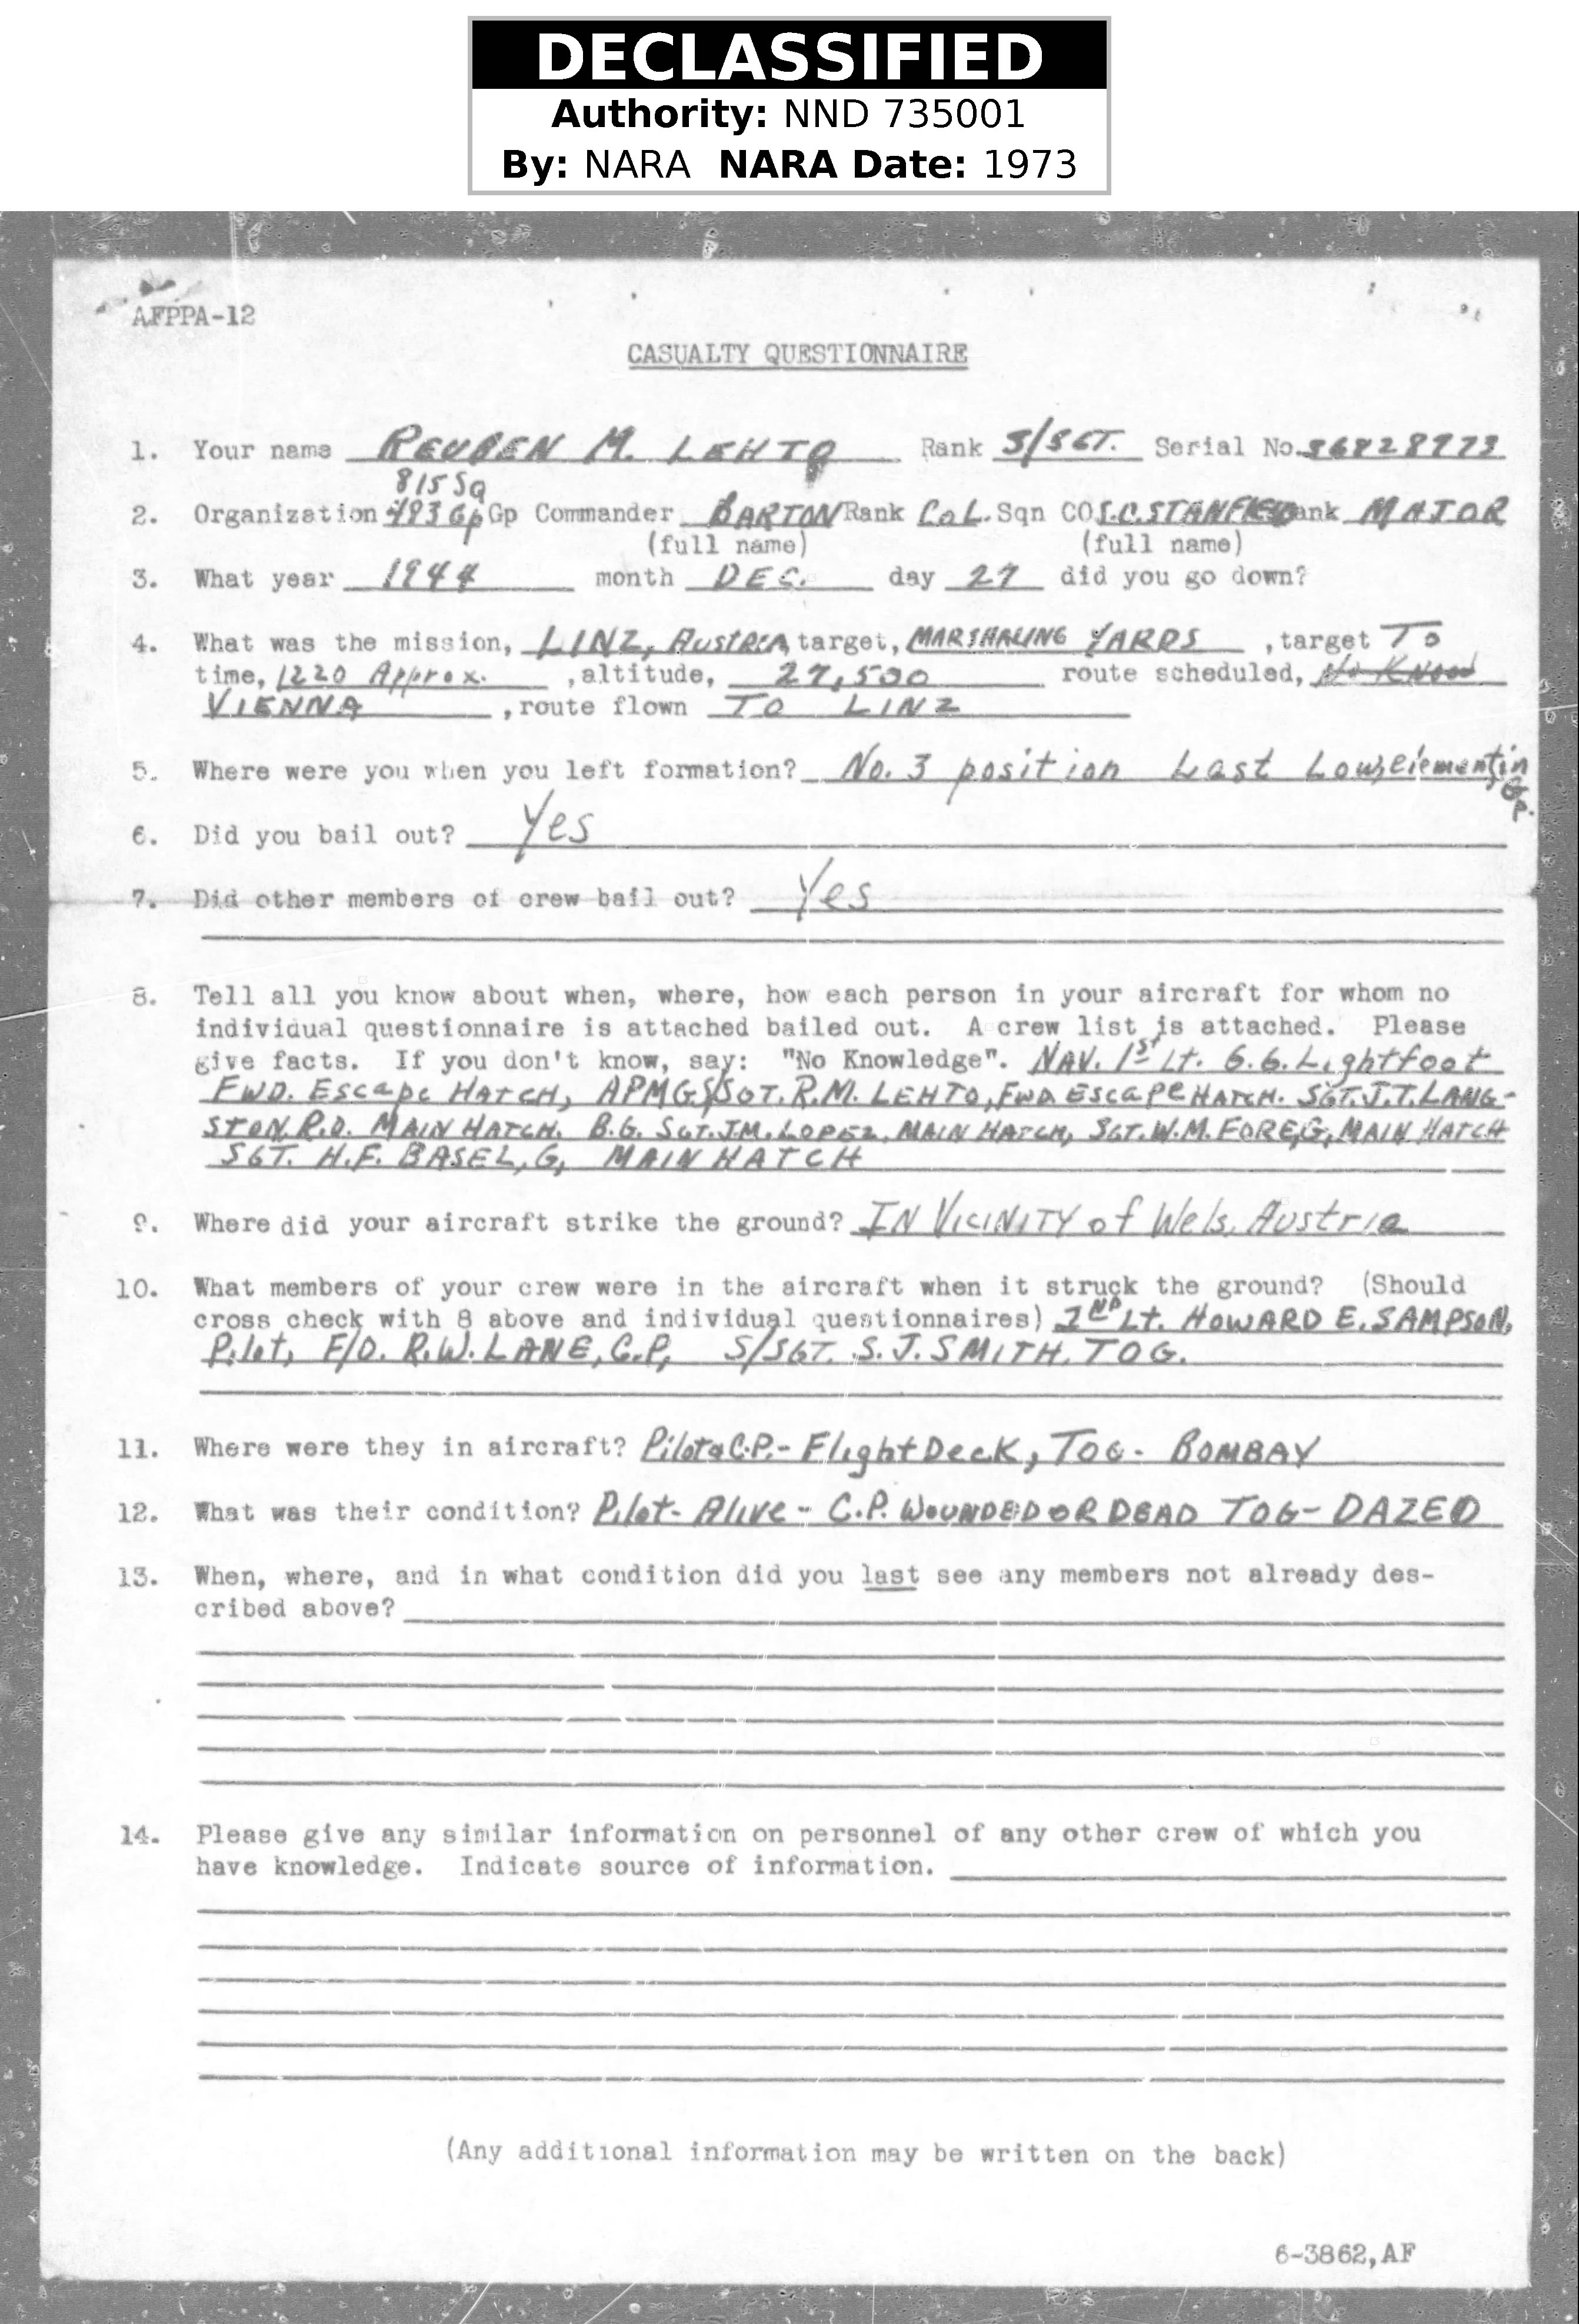 DECLASSIFIED
Authority: NND 735001
By: NARA NARA Date: 1973
AFPPA-12
CASUALTY QUESTIONNAIRE
1. Your name REUBEN M. LEHTO Rank S/SGT. Serial No.
815 Sq
2. Organization 483 Gp Gp Commander BARTON Rank COL. Sqn CO S.C. STANFIELD Rank MAJOR
(full name) (full name)
3. What year 1944 month DEC. day 27 did you go down?
4. What was the mission, LINZ, AUSTRIA, target, MARSHALING YARDS , target TO
time, 1220 Approx. , altitude, 27,500 route scheduled, No Know
VIENNA , route flown TO LINZ
5. Where were you when you left formation? No. 3 position Last Low, element, in
Gp.
6. Did you bail out? Yes
7. Did other members of crew bail out? Yes
8. Tell all you know about when, where, how each person in your aircraft for whom no
individual questionnaire is attached bailed out. A crew list is attached. Please
give facts. If you don't know, say: "No Knowledge". NAV. 1st Lt. G.G. Lightfoot
FWD. Escape HATCH, APMG S/SGT. R.M. LEHTO, FWD EscapE HATCH. SGT. J.T. LANG-
STON, R.O. MAIN HATCH. B.G. SGT. J.M. LOPEZ, MAIN HATCH, SGT. W.M. FORE, G, MAIN HATCH
SGT. H.F. BASEL, G, MAIN HATCH
9. Where did your aircraft strike the ground? IN VICINITY of Wels, Austria
10. What members of your crew were in the aircraft when it struck the ground? (Should
cross check with 8 above and individual questionnaires) 2ND Lt. HOWARD E. SAMPSON,
Pilot, F/O. R.W. LANE, C.P., S/SGT. S.J. SMITH. TOG.
11. Where were they in aircraft? Pilot & C.P. - Flight Deck, TOG - BOMBAY
12. What was their condition? Pilot - Alive - C.P. WOUNDED OR DEAD TOG - DAZED
13. When, where, and in what condition did you last see any members not already des-
cribed above?
14. Please give any similar information on personnel of any other crew of which you
have knowledge. Indicate source of information.
(Any additional information may be written on the back)
6-3862,AF